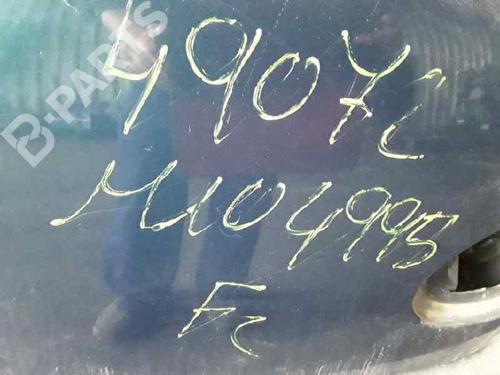 B-PARTS
4907C
M104995
Fr